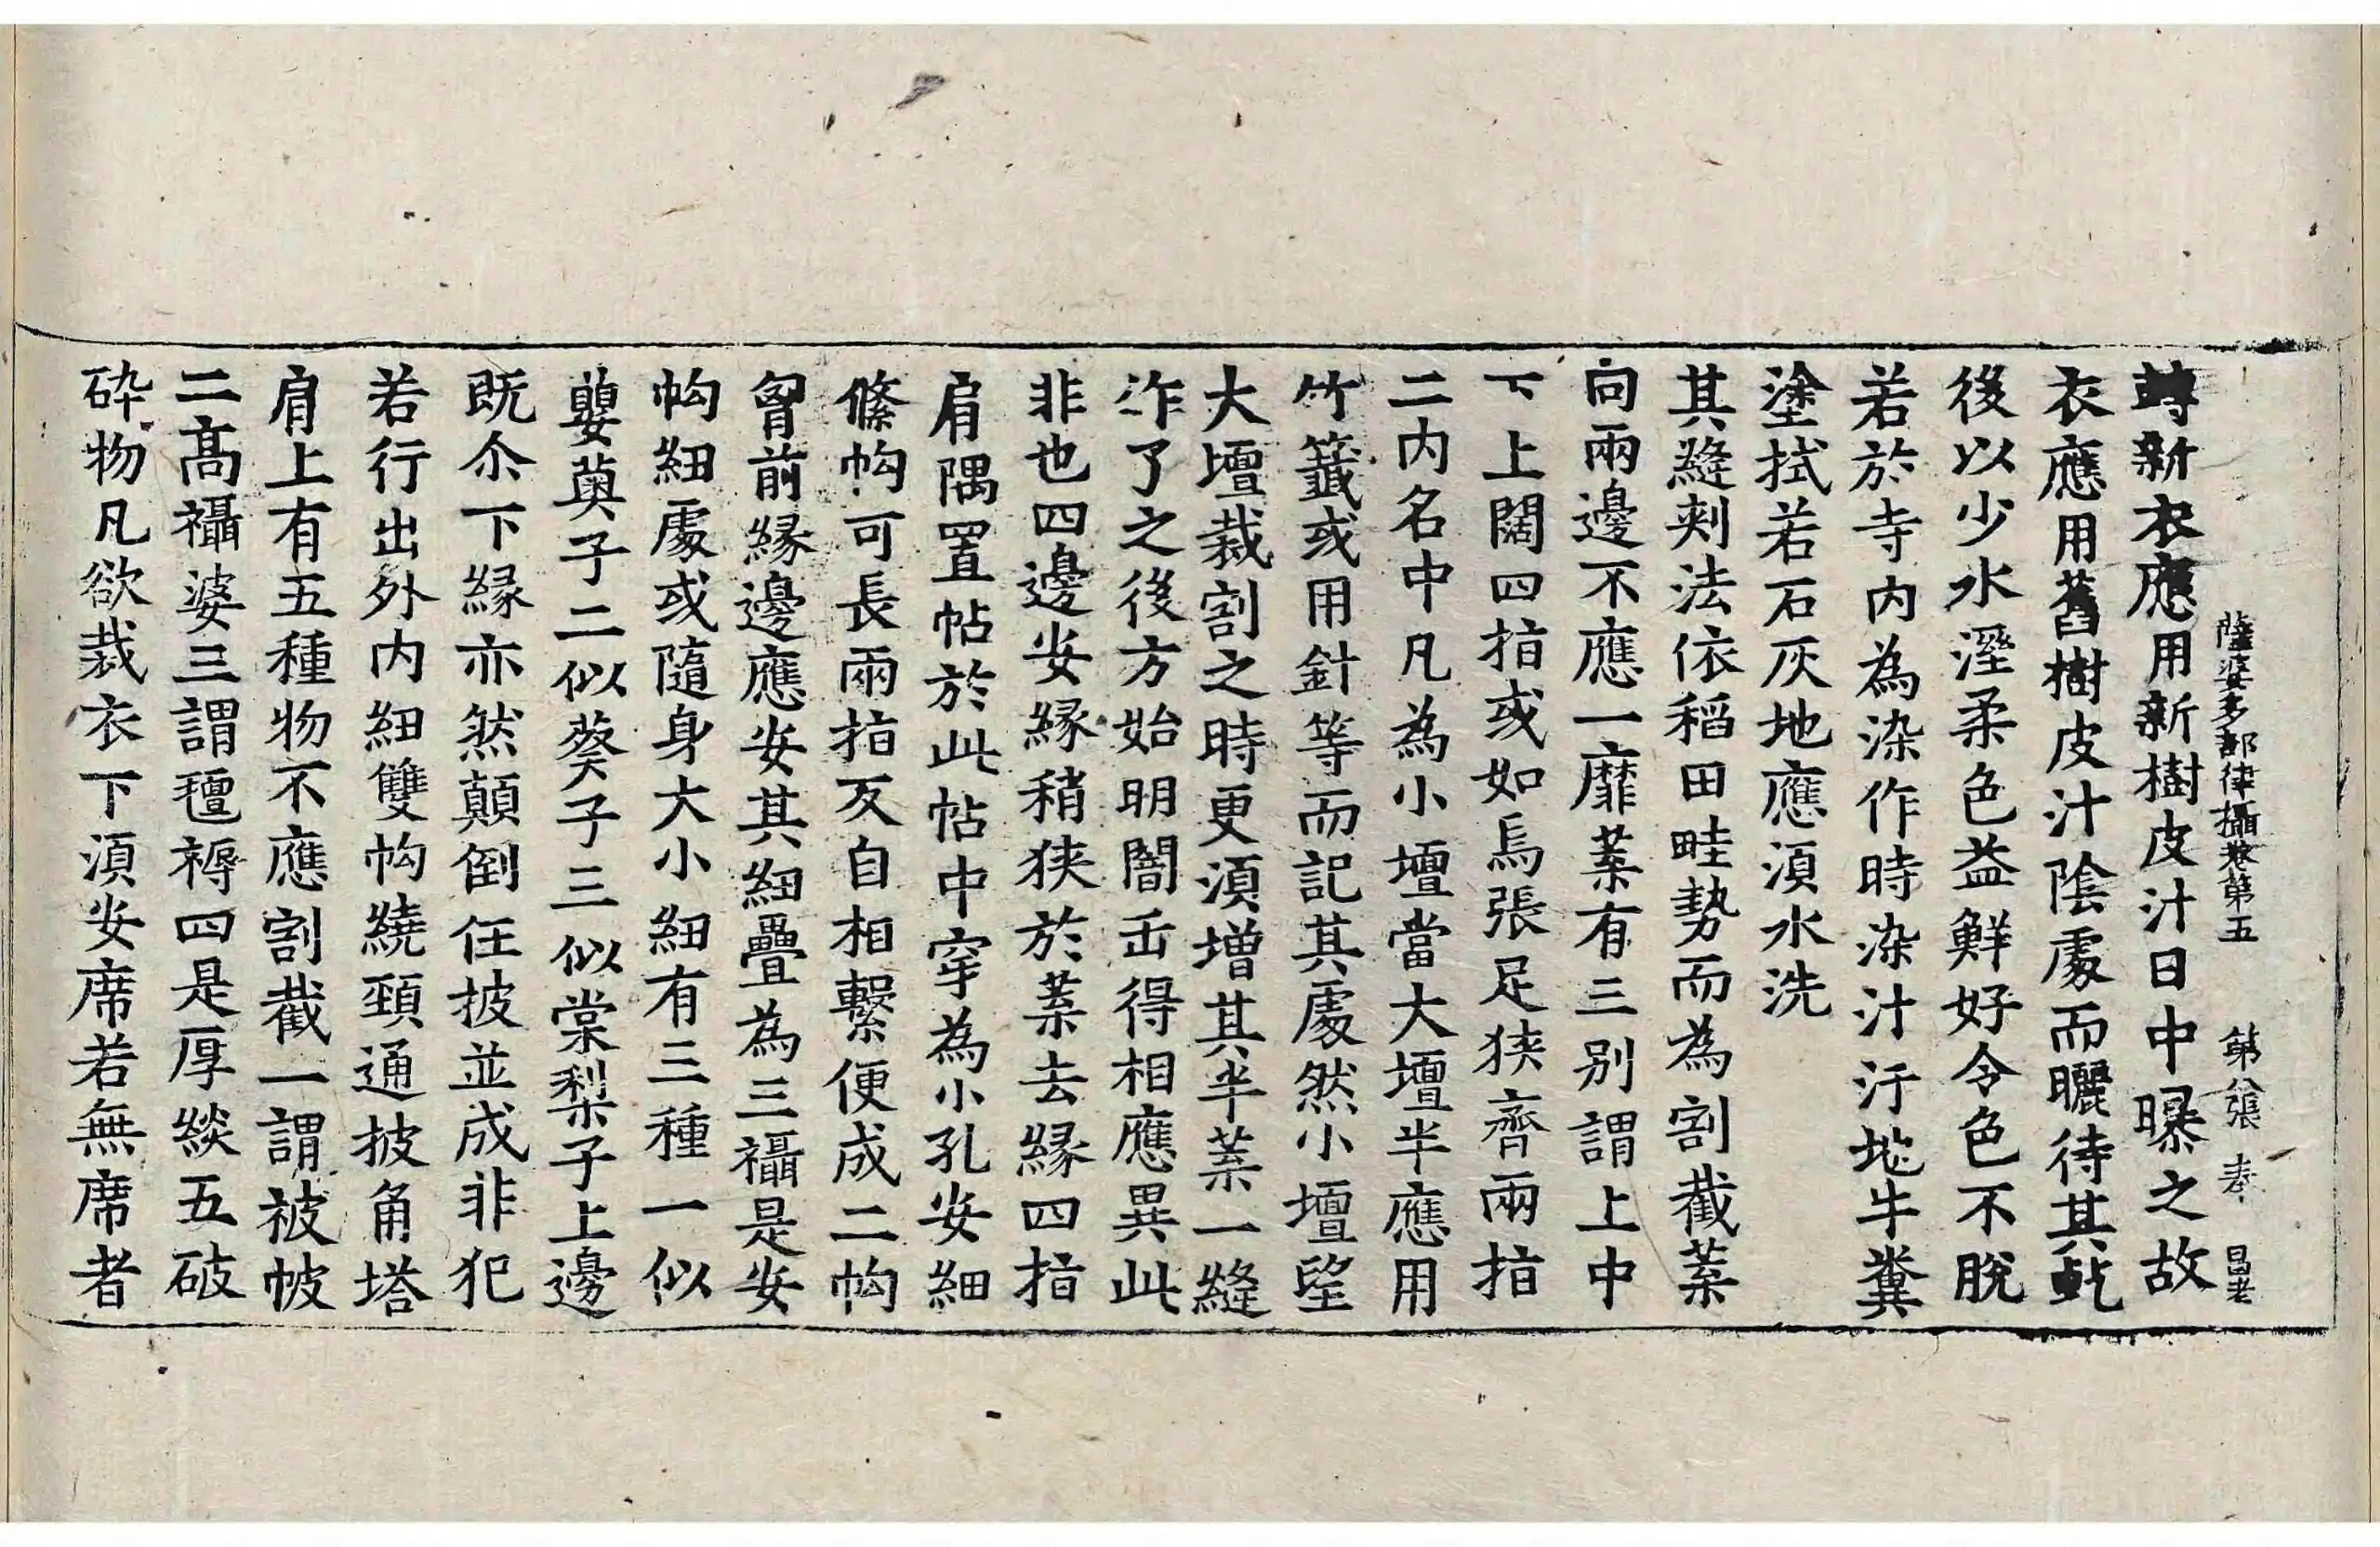 薩婆多部律攝卷第五 第八張 奉 昌老
轉新衣應用新樹皮汁日中曝之故
衣應用舊樹皮汁陰處而曬待其乾
後以少水溼柔色益鮮好令色不脫
若於寺内為染作時染汁汙地牛糞
塗拭若石灰地應湏水洗
其縫刾法依稻田畦勢而為割截葉
向兩邊不應一靡葉有三別謂上中
下上闊四指或如烏張足狹齊兩指
二内名中凡為小壇當大壇半應用
竹籤或用針等而記其處然小壇望
大壇裁割之時更湏増其半葉一縫
作了之後方始明闇缶得相應異此
非也四邊安緣稍狹於葉去緣四指
肩隅置帖於此帖中穿為小孔安細
絛帉可長兩指反自相繫便成二帉
胷前緣邊應安其紐疊為三襵是安
帉紐處或隨身大小紐有三種一似
蘡薁子二似葵子三似棠梨子上邊
既尒下緣亦然顛倒任披並成非犯
若行出外内紐雙帉繞頸通披角塔
肩上有五種物不應割截一謂被帔
二髙襵婆三謂氊褥四是厚緂五破
碎物凡欲裁衣下湏安席若無席者